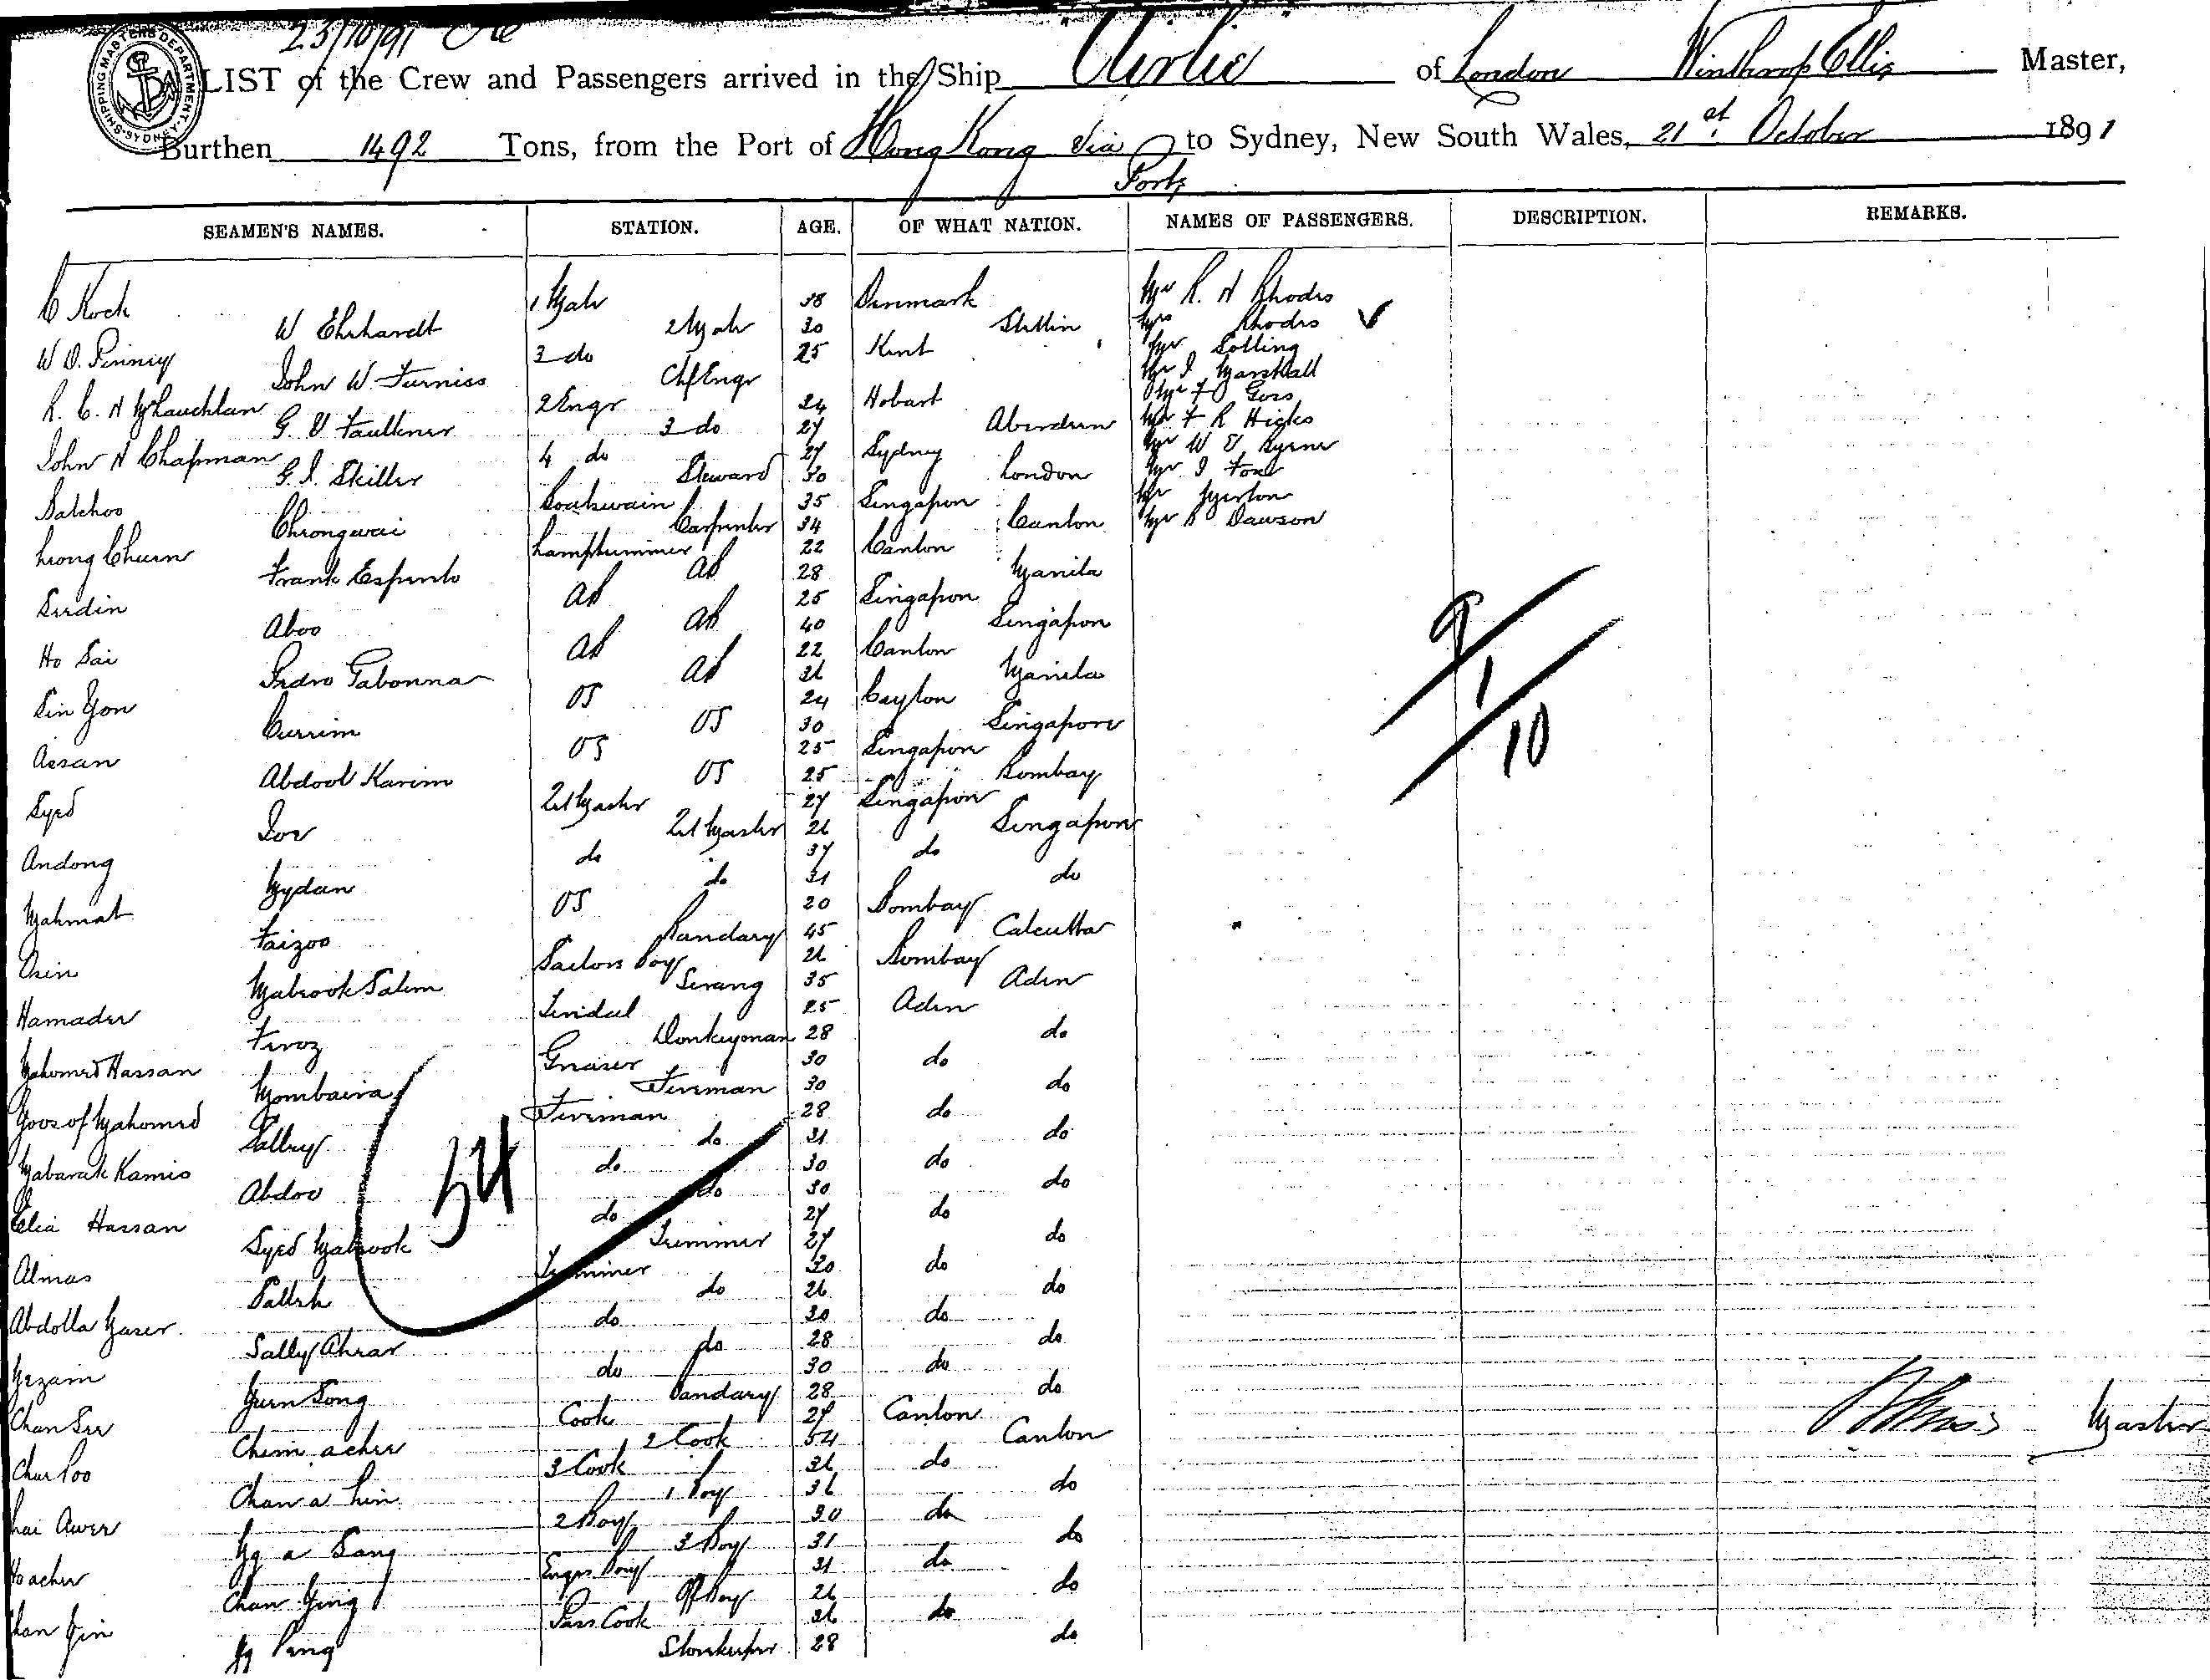 23/10/91
SHIPPING MASTERS DEPARTMENT SYDNEY
LIST of the Crew and Passengers arrived in the Ship "Airlie" of London Winthrop Ellis Master,
Burthen 1492 Tons, from the Port of Hong Kong via Ports to Sydney, New South Wales, 21st October 1891
SEAMEN'S NAMES. STATION. AGE. OF WHAT NATION. NAMES OF PASSENGERS. DESCRIPTION. REMARKS.
C Koch 1 Mate 38 Denmark Mr R. H Rhodes
W Ehrhardt 2 Mate 30 Stettin Mrs Rhodes
W D. Pinney 3 do 25 Kent Mr Solling
John W. Furniss Chf Engr Mr J Marshall
R. C. H McLauchlan 2 Engr 24 Hobart Mr F O Goss
G. V Faulkner 3 do 27 Aberdeen Mr F R Hicks
John H Chapman 4 do 27 Sydney Mr W E Byrne
G. J. Skiller Steward 30 London Mr J Ford
Salchoo Boatswain 35 Singapore Mr Myerton
Chiongwai Carpenter 34 Canton Mr B Dawson
Leong Chuen Lamptrimmer 22 Canton
Frank Espinto AB 28 Manila
Surdin AB 25 Singapore
Aboo AB 40 Singapore
Ho Sai AB 22 Canton
Pedro Gabonna AB 26 Manila
Sin Yon OS 24 Ceylon
Currim OS 30 Singapore
Assan OS 25 Singapore
Abdool Karim OS 25 Bombay
Syed Qtr Master 27 Singapore
Joe Qtr Master 26 Singapore
Andong do 37 do
Mydan do 31 do
Mahmat OS 20 Bombay
Faizoo Bandary 45 Calcutta
Osin Sailors Boy 26 Bombay
Mabrook Salem Serang 35 Aden
Hamader Tindal 25 Aden
Firoz Donkeyman 28 do
Mahomed Hassan Greaser 30 do
Mombaira Fireman 30 do
Yoosof Mahomed Fireman 28 do
Salley do 31 do
Mabarak Kamis do 30 do
Abdoo do 30 do
Elia Hassan do 27 do
Syed Mabrook Trimmer 27 do
Almas Trimmer 30 do
Salleh do 26 do
Abdolla Yaser do 30 do
Sally Ahrar do 28 do
Mezam do 30 do
Yuen Song Bandary 28 do
Chan See Cook 27 Canton
Chim acher 2 Cook 54 Canton
Chu Poo 3 Cook 36 do
Chan a Lin 1 Boy 36 do
Lai Awer 2 Boy 30 do
Ng a Sang 3 Boy 31 do
Ho acher Engrs Boy 31 do
Chan Ying Off Boy 26 do
Chan Jin Pass Cook 36 do
Ng Pang Storekeeper 28 do
54
9/1/10
Master